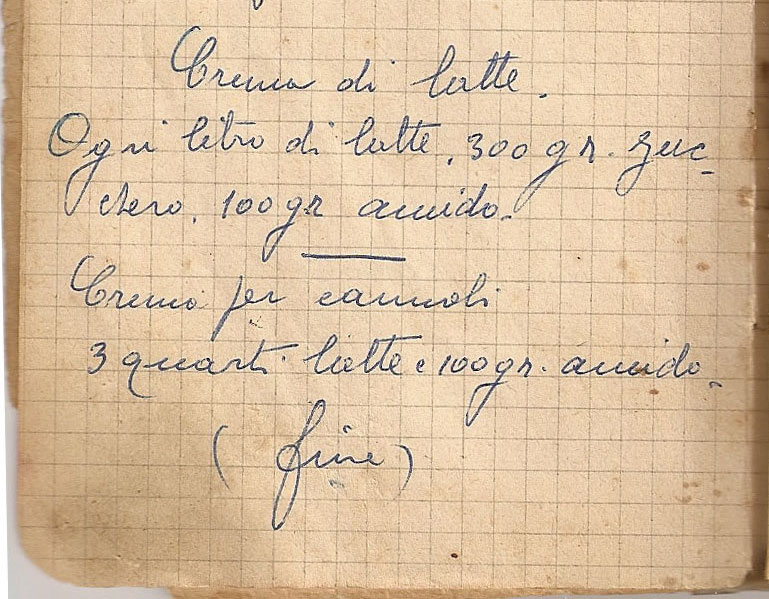 Crema di latte.
Ogni litro di latte, 300 gr. zuc-
chero, 100 gr amido.
Crema per cannoli
3 quarti latte e 100 gr. amido.
( fine )